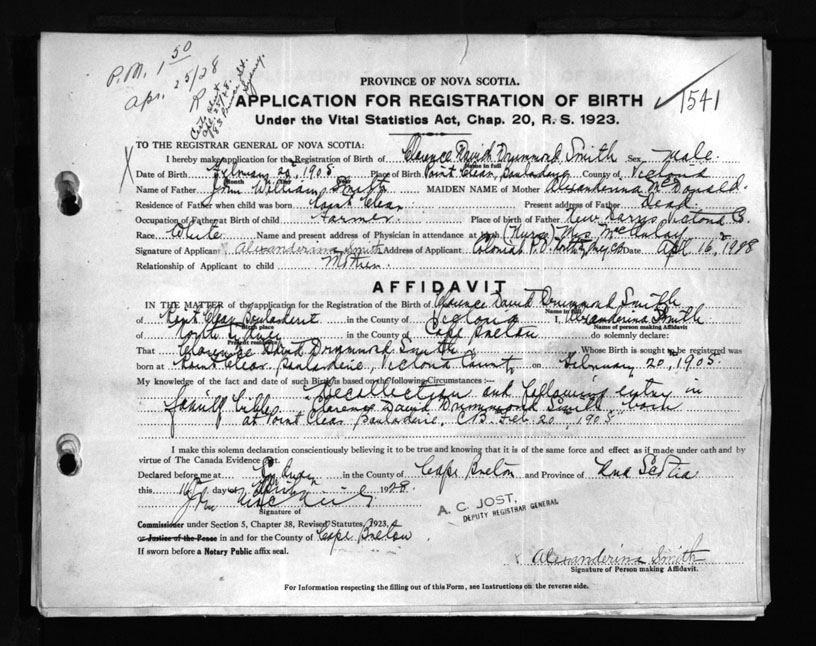 P.M. 1 50
Apr. 25/28
R
PROVINCE OF NOVA SCOTIA.
APPLICATION FOR REGISTRATION OF BIRTH
1541
Under the Vital Statistics Act, Chap. 20, R. S. 1923.
TO THE REGISTRAR GENERAL OF NOVA SCOTIA:
I hereby make application for the Registration of Birth of Clarence David Drummond Smith Sex Male.
Name in full
Date of Birth February 20, 1905 Place of Birth Point Clear, Boularderie Victoria
Month Day Date
Name of Father John William Smith MAIDEN NAME of Mother Alexanderina McDonald.
Residence of Father when child was born Point Clear Present address of Father Dead
Occupation of Father at Birth of child Farmer. Place of birth of Father New Harris Victoria Co.
Race White Name and present address of Physician in attendance at birth (Nurse) Mrs.
Signature of Applicant x Alexanderina Smith Address of Applicant Colonial Date Apl 16, 1928
Relationship of Applicant to child Mother.
AFFIDAVIT
IN THE MATTER of the application for the Registration of the Birth of Clarence David Drummond Smith
Name in full
of Point Clear Boularderie in the County of Victoria I, Alexanderina Smith
Birth place Name of person making Affidavit
of North Sydney in the County of Cape Breton do solemnly declare:
Present residence
That Clarence David Drummond Smith Whose Birth is sought to be registered was
born at Point Clear, Boularderie, Victoria County on February 20, 1905.
My knowledge of the fact and date of such Birth is based on the following Circumstances:—
Recollection and following entry in
family bible "Clarence David Drummond Smith born
at Point Clear Boularderie, C.B. Feb. 20, 1905"
I make this solemn declaration conscientiously believing it to be true and knowing that it is of the same force and effect as if made under oath and by
virtue of The Canada Evidence Act.
Declared before me at Sydney in the County of Cape Breton and Province of Nova Scotia
this 16 day of April 1928.
John
Signature of
A. C. JOST,
DEPUTY REGISTRAR GENERAL
Commissioner under Section 5, Chapter 38, Revised Statutes, 1923,
or Justice of the Peace in and for the County of Cape Breton
If sworn before a Notary Public affix seal.
x Alexanderina Smith
Signature of Person making Affidavit.
For Information respecting the filling out of this Form, see Instructions on the reverse side.